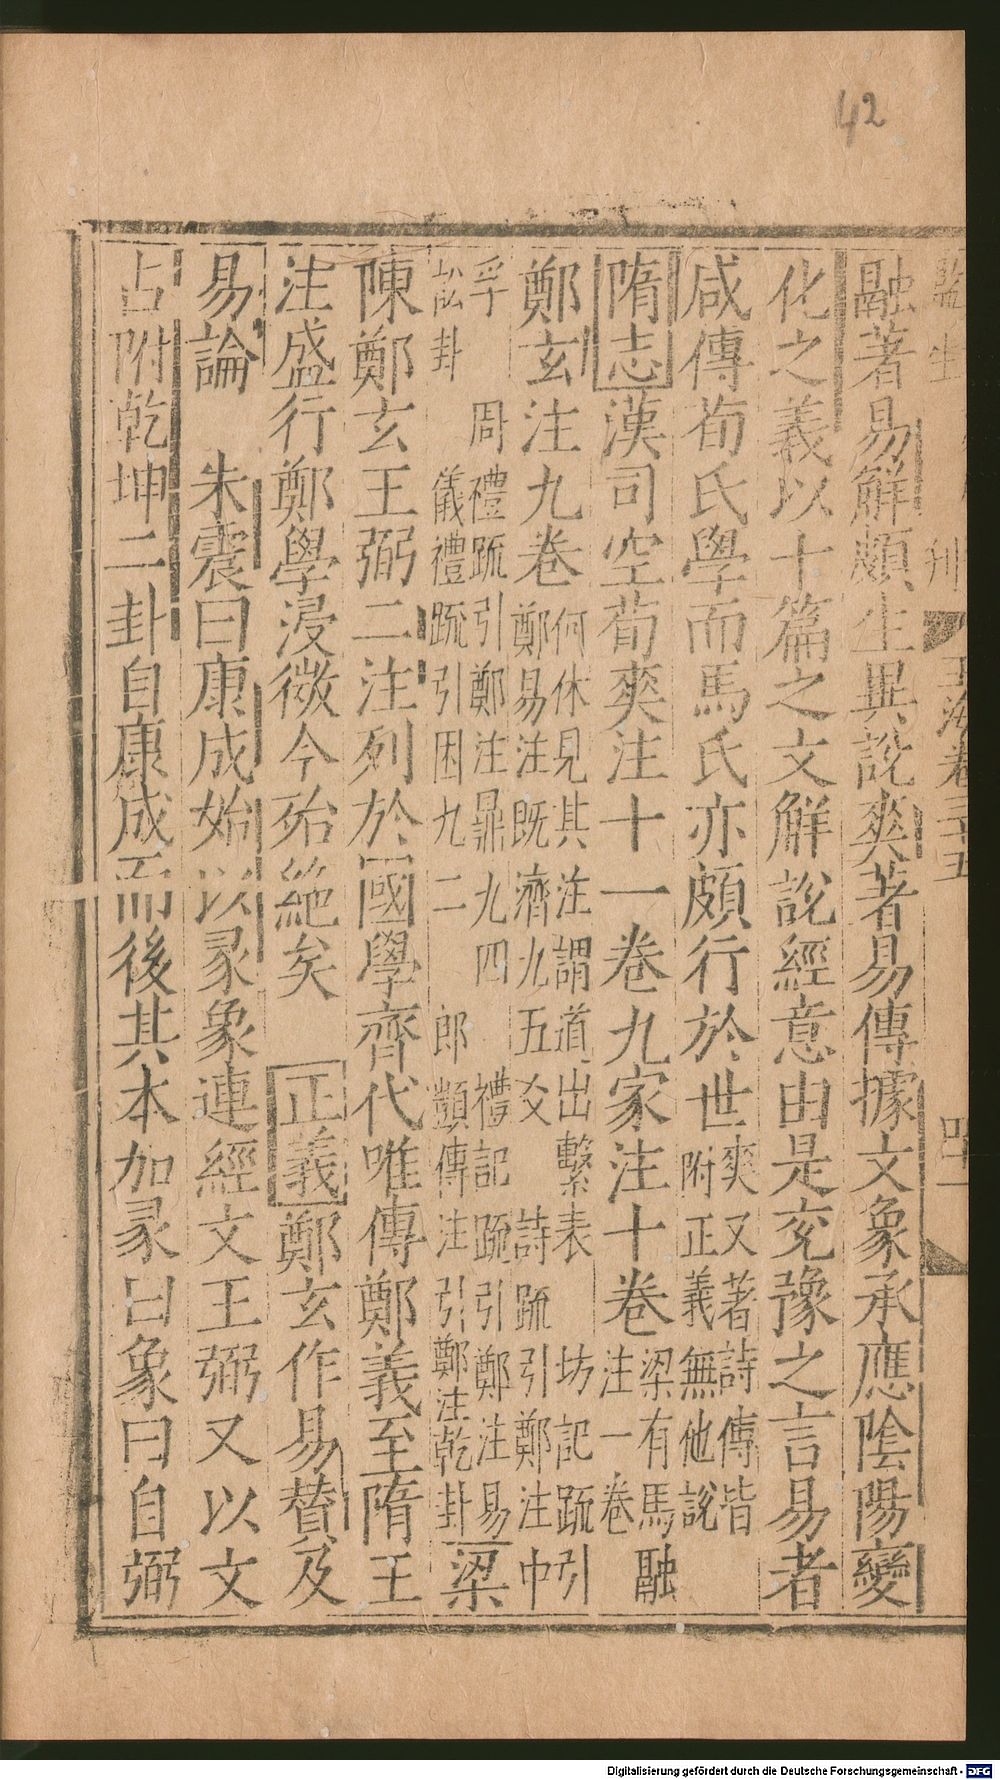 42
監生
刊
玉海卷三十五
四十一
融著易解頗生異說爽著易傳據文象承應陰陽變
化之義以十篇之文解說經意由是兖豫之言易者
咸傳荀氏學而馬氏亦頗行於世爽又著詩傳皆
附正義無他說
隋志漢司空荀爽注十一卷九家注十卷梁有馬融
注一卷
鄭玄注九卷何休見其注謂道出繫表 坊記䟽引
鄭易注既濟九五爻 詩䟽引鄭注中
孚 周禮䟽引鄭注鼎九四 禮記䟽引鄭注易
訟卦 儀禮䟽引困九二 郎顗傳注引鄭注乾卦梁
陳鄭玄王弼二注列於國學齊代唯傳鄭義至隋王
注盛行鄭學浸微今殆絶矣 正義鄭玄作易賛及
易論 朱震曰康成始以彖象連經文王弼又以文
言附乾坤二卦自康成而後其本加彖曰象曰自弼
Digitalisierung gefördert durch die Deutsche Forschungsgemeinschaft - DFG